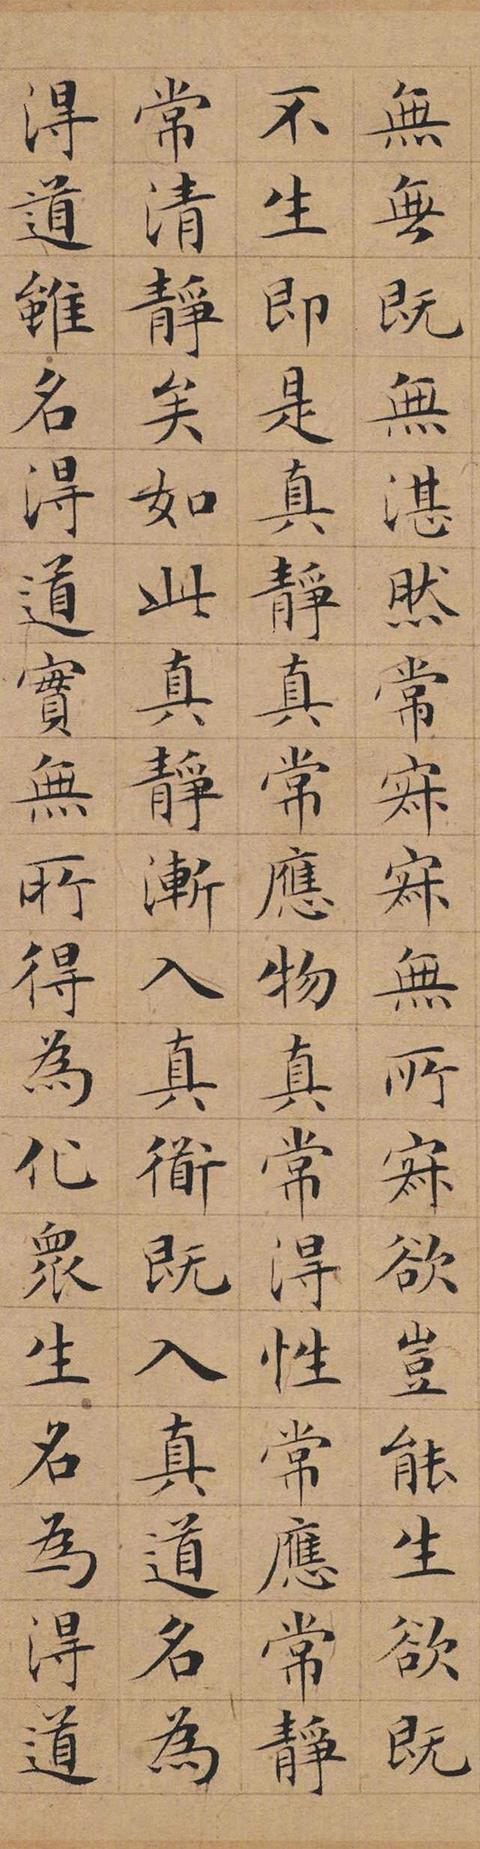 無無既無湛然常寂寂無所寂欲豈能生欲既
不生即是真靜真常應物真常得性常應常靜
常清靜矣如此真靜漸入真道既入真道名為
得道雖名得道實無所得為化衆生名為得道